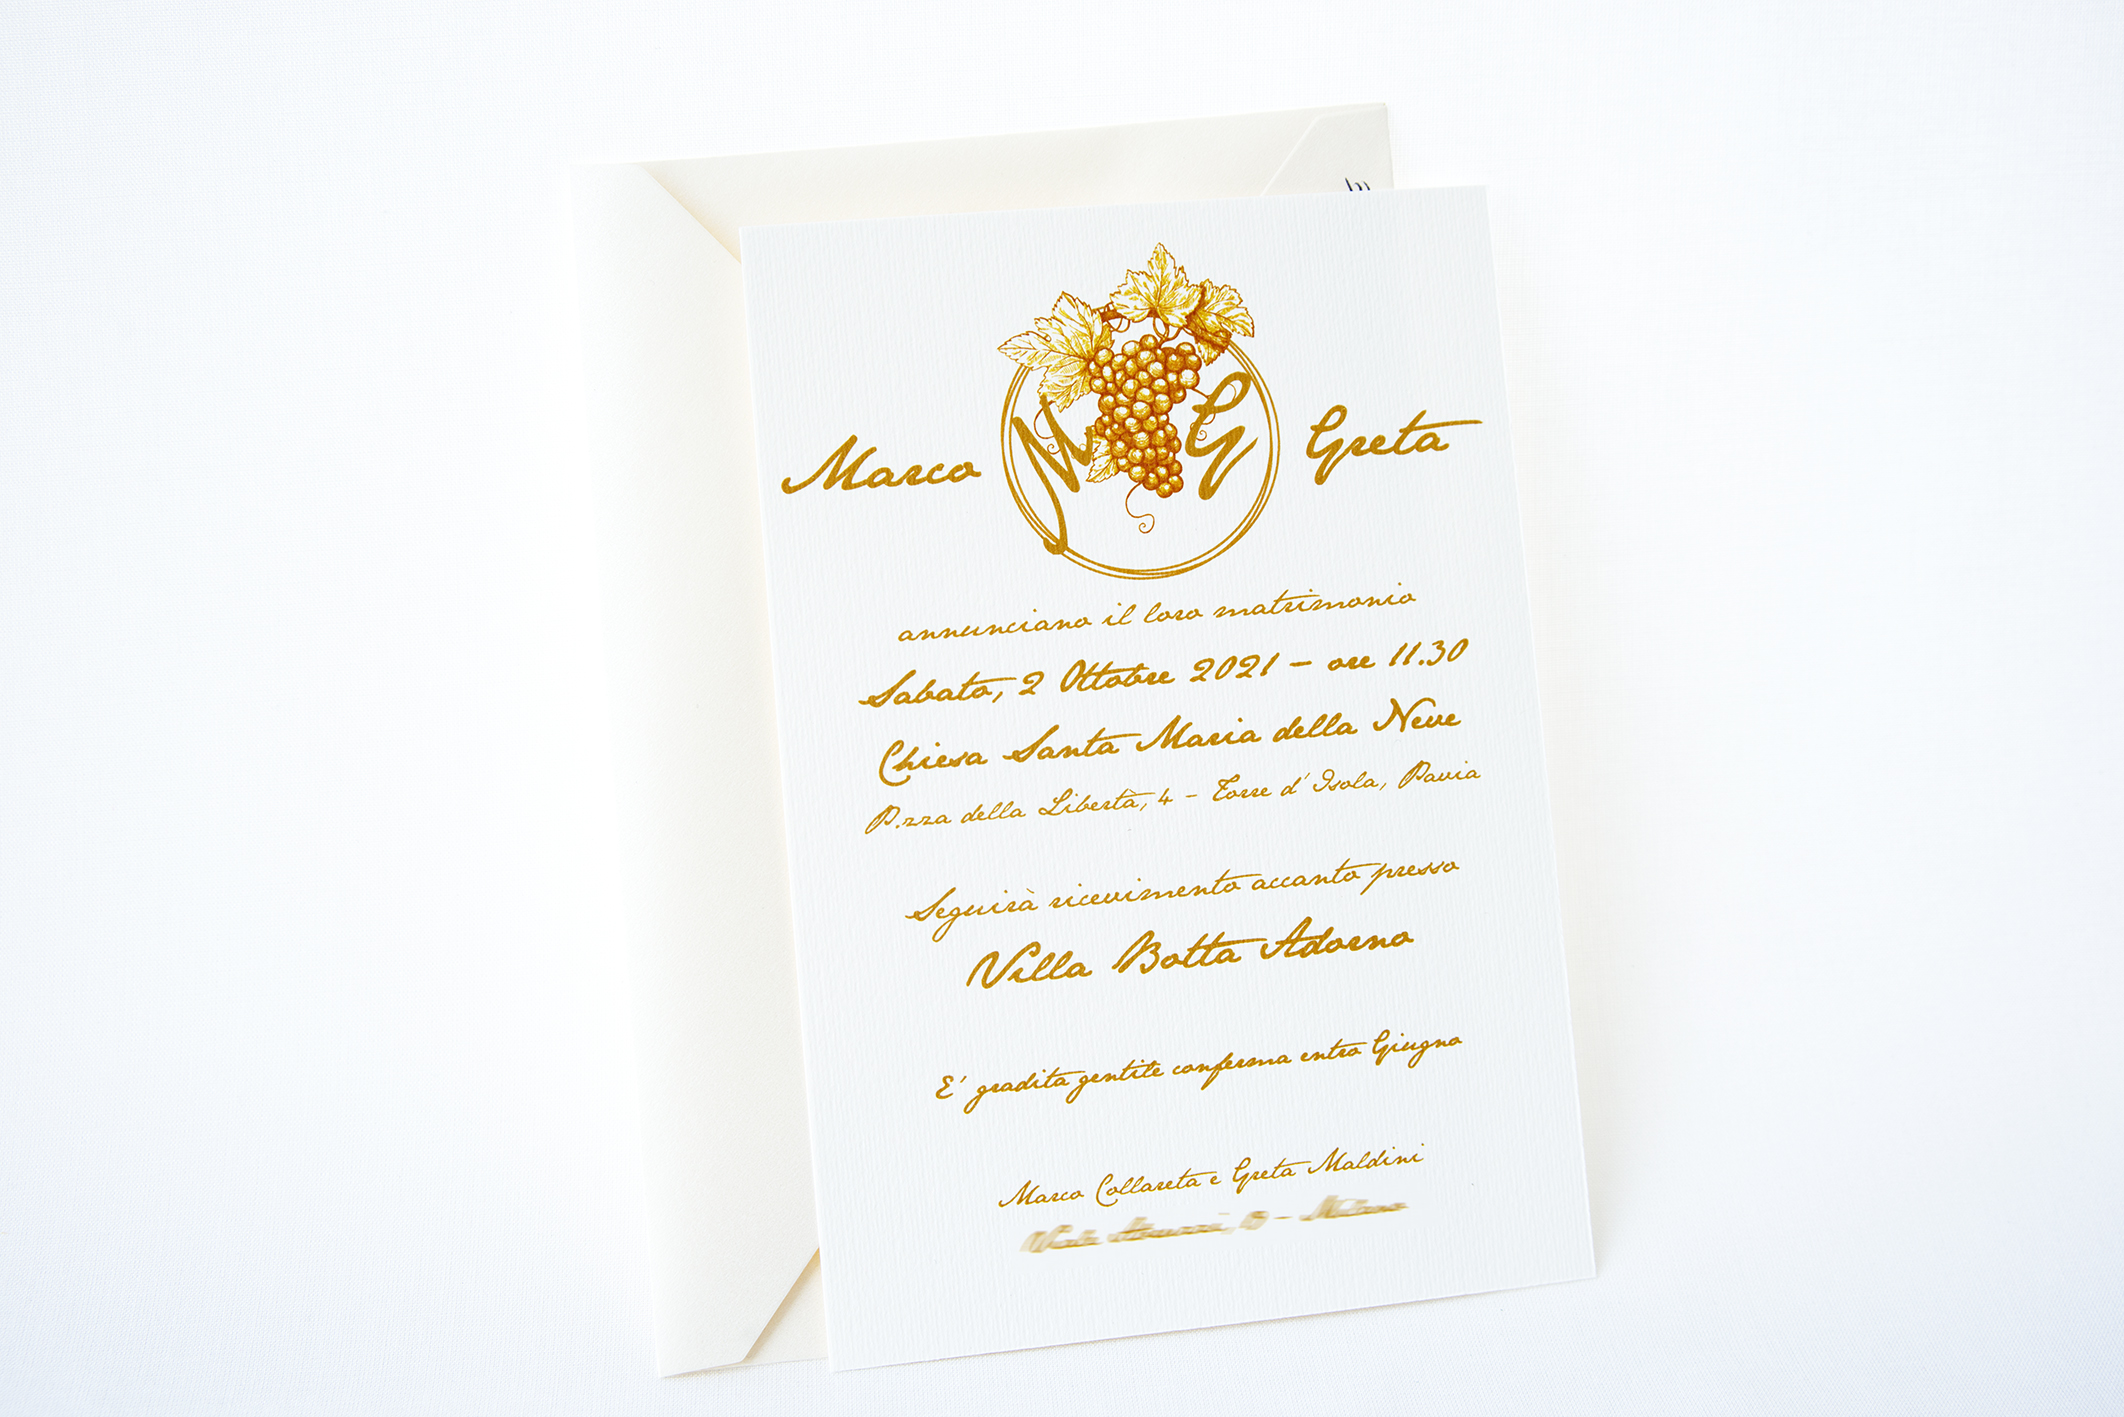 Marco M G Greta
annunciano il loro matrimonio
Sabato, 2 Ottobre 2021 - ore 11.30
Chiesa Santa Maria della Neve
P.zza della Libertà, 4 - Torre d'Isola, Pavia
Seguirà ricevimento accanto presso
Villa Botta Adorno
E' gradita gentile conferma entro Giugno
Marco Collareta e Greta Maldini